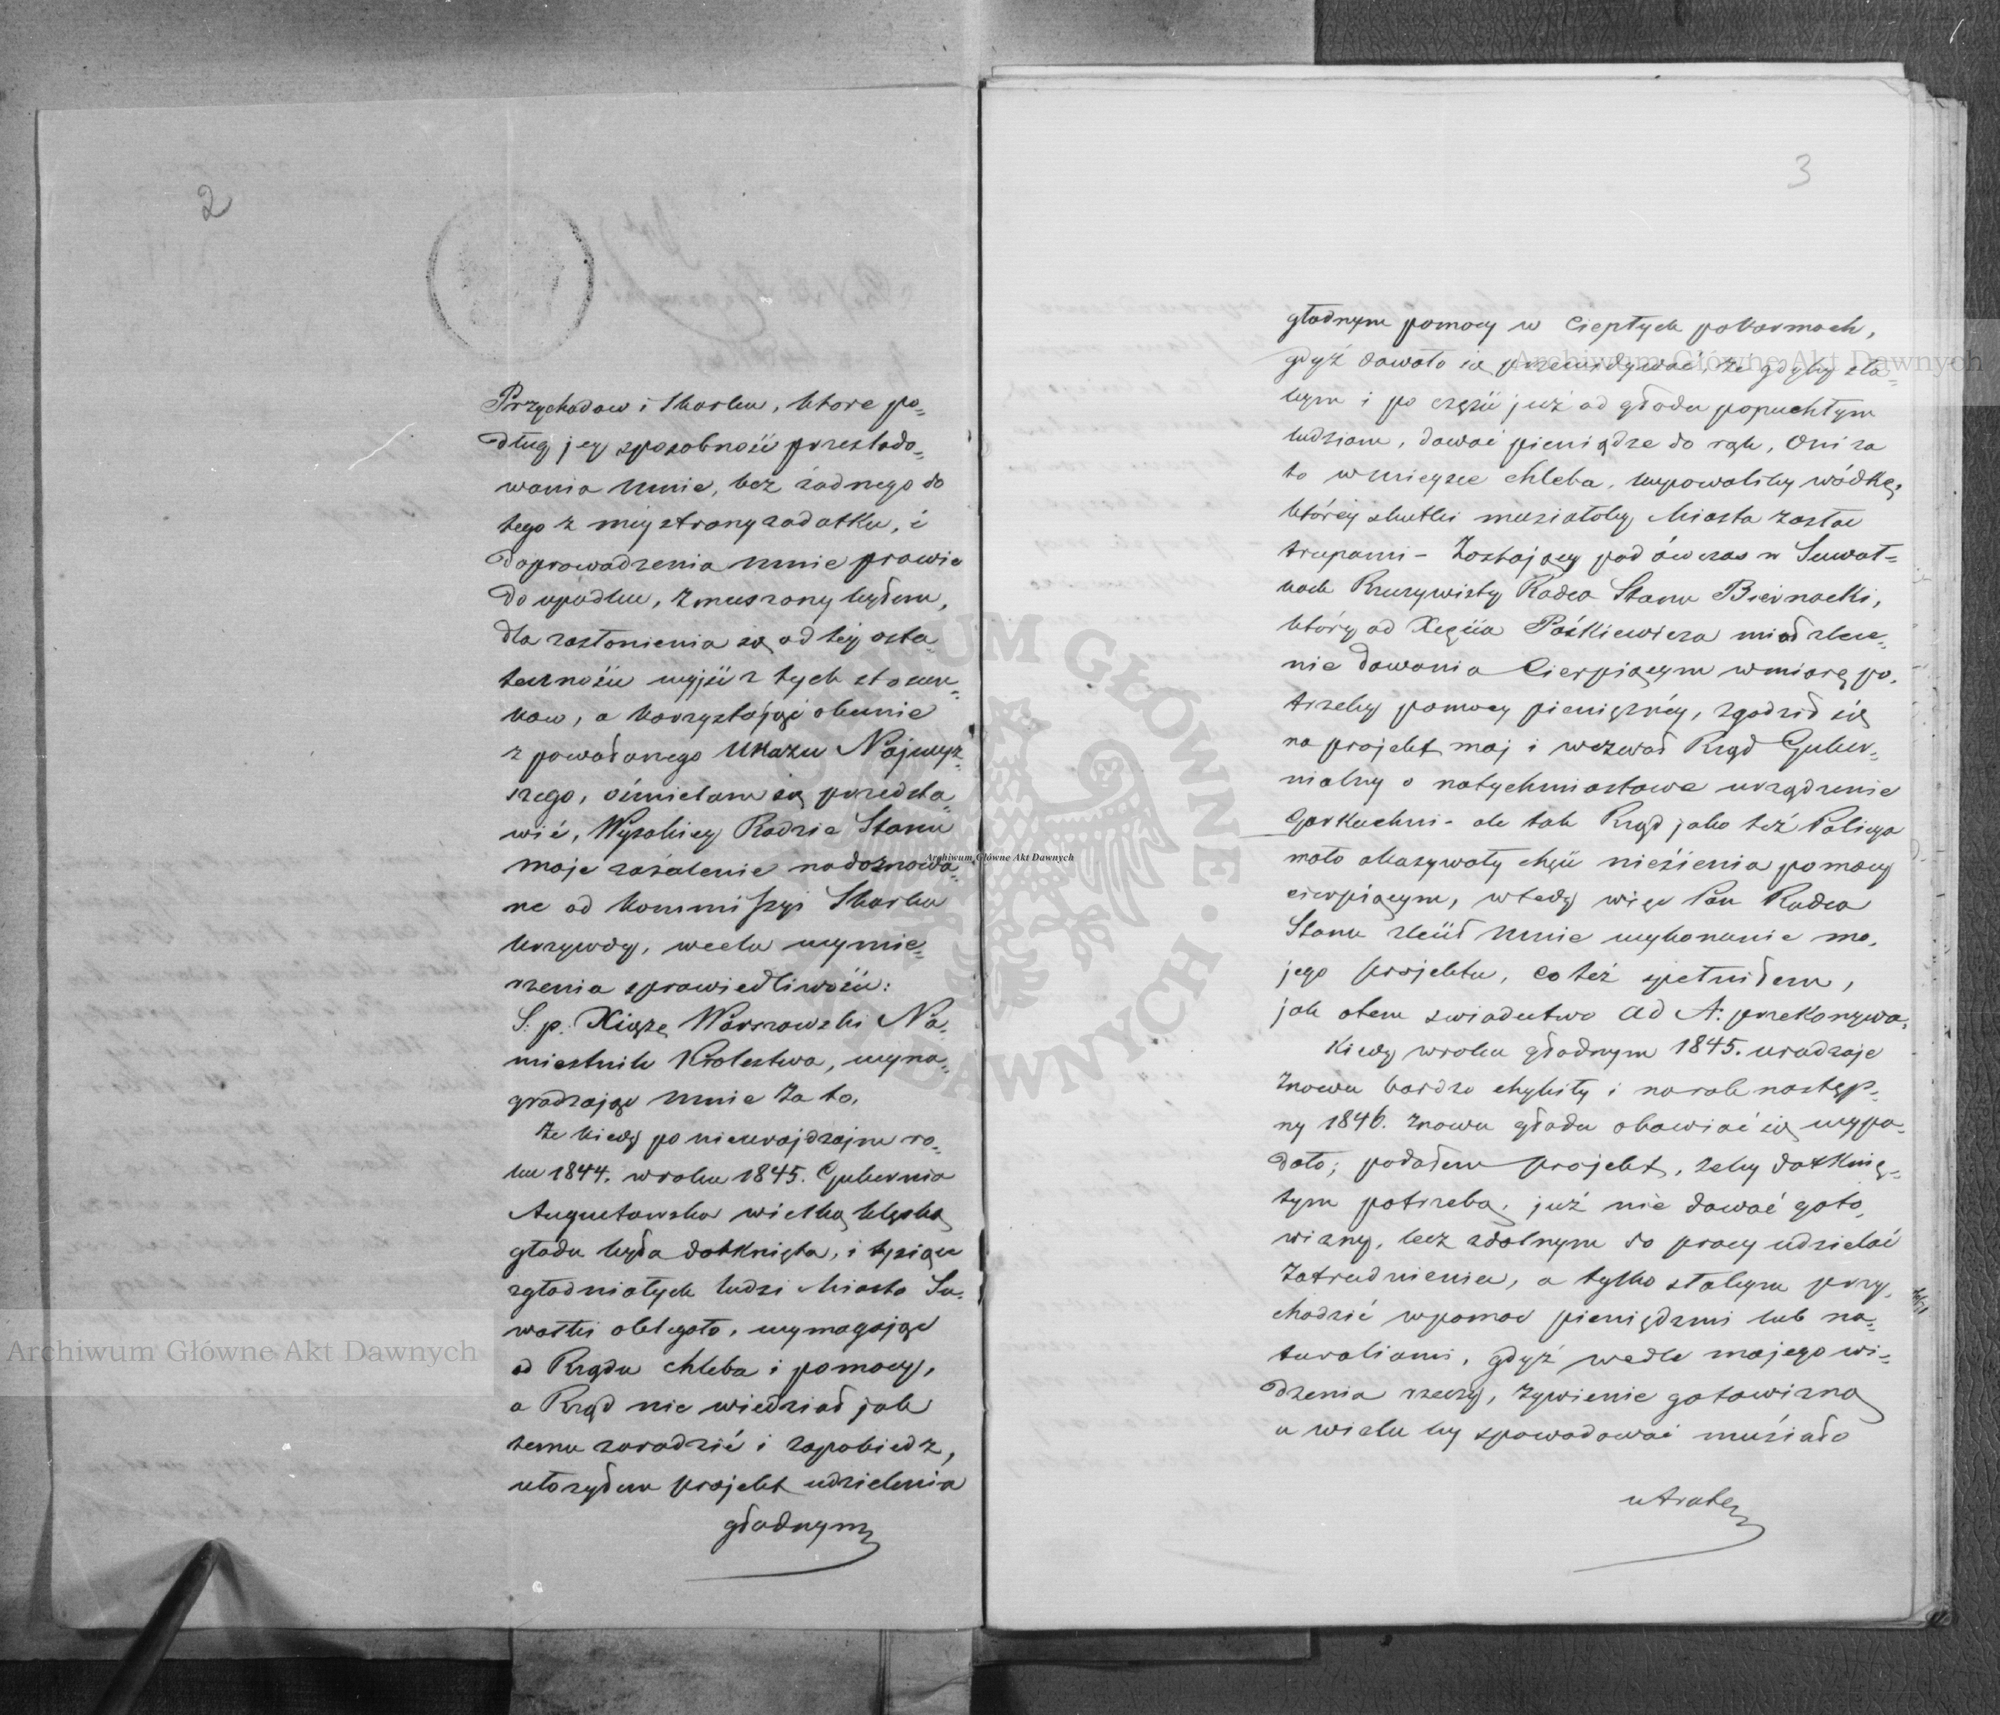 2
Przychodow i Skarbu, ktore po-
dług jey sposobność prześlado-
wania mnie, bez żadnego do
tego z mey strony zadatku, i
doprowadzenia mnie prawie
do upadku, zmuszony byłem,
dla zasłonienia się od tey osta-
teczności wyjść z tych stosun-
kow, a korzystając obecnie
z powołanego Ukazu Najwyż-
szego, ośmielam się przedsta-
wić, Wysokiey Radzie Stanu
moje zażalenie nad doznowa-
ne od Kommissyi Skarbu
krzywdy, w celu wymie-
rzenia sprawiedliwości:
S: p: Xiąże Warszawski Na-
miestnik Krolestwa, wyna-
gradzając mnie za to,
że kiedy po nieurodzajnem ro-
ku 1844. w roku 1845. Gubernia
Augustowska wielką klęską
głodu była dotknięta, i tysiące
zgłodniałych ludzi Miasto Su-
wałki oblegało, wymagając
od Rządu chleba i pomocy,
a Rząd nie wiedział jak
temu zaradzić i zapobiedz,
ułożyłem projekt udzielenia
głodnym
3
głodnym pomocy w ciepłych pokarmach,
gdyż dawało się przewidywać, że gdyby sła-
bym i po części już od głodu popuchłym
ludziom, dawać pieniądze do rąk, oni za
to w miejsce chleba, kupowaliby wódkę,
którey skutki musiałoby Miasto zasłać
trupami - Zostający pod ówczas w Suwał-
kach Rzeczywisty Radca Stanu Biernacki,
który od Xięcia Paśkiewicza miał zlece-
nie dawania cierpiącym w miarę po-
trzeby pomocy pieniężnéy, zgodził się
na projekt moj i wezwał Rząd Guber-
nialny o natychmiastowe urządzenie
Garkuchni - ale tak Rząd jako też Policya
mało okazywały chęci niesienia pomocy
cierpiącym, wtedy więc Pan Radca
Stanu zlecił mnie wykonanie mo-
jego projektu, co też spełniłem,
jak otem swiadectwo ad A: przekonywa.
Kiedy w roku głodnym 1845. urodzaje
znowu bardzo chybiły i na rok następ-
ny 1846. znowu głodu obawiać się wypa-
dało; podałem projekt, żeby dotknię-
tym potrzebą, już nie dawać goto-
wizny, lecz zdolnym do pracy udzielać
zatrudnienia, a tylko słabym przy-
chodzić w pomoc pieniędzmi lub na-
turaliami, gdyż wedle mojego wi-
dzenia rzeczy, żywienie gotowizną
u wielu by spowodować musiało
utratę
Archiwum Główne Akt Dawnych
Archiwum Główne Akt Dawnych
Archiwum Główne Akt Dawnych
ARCHIWUM GŁÓWNE • AKT DAWNYCH •